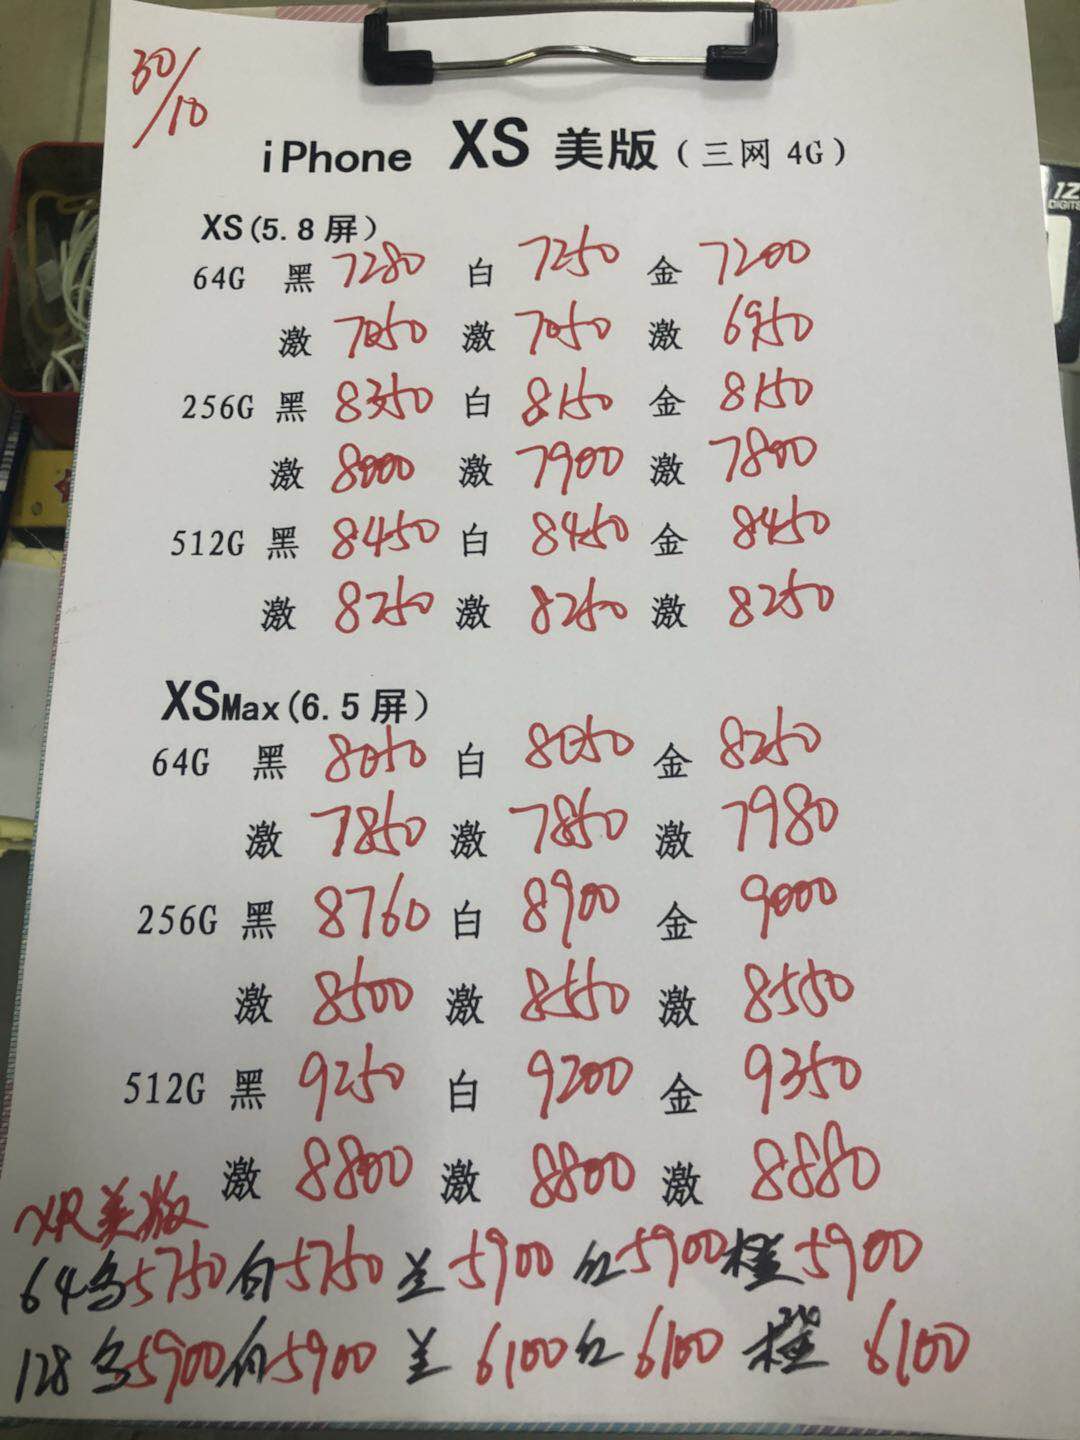 30/10
iPhone XS 美版（三网 4G）
XS(5.8屏）
64G 黑 7280 白 7250 金 7200
激 7050 激 7050 激 6950
256G 黑 8350 白 8150 金 8150
激 8000 激 7900 激 7800
512G 黑 8450 白 8450 金 8450
激 8250 激 8250 激 8250
XSMax(6.5屏）
64G 黑 8050 白 8050 金 8250
激 7850 激 7850 激 7980
256G 黑 8760 白 8900 金 9000
激 8500 激 8550 激 8550
512G 黑 9250 白 9200 金 9350
激 8800 激 8800 激 8880
XR美版
64 5750 白 5750 兰 5900 红 5900 橙 5900
128 5900 白 5900 兰 6100 红 6100 橙 6100